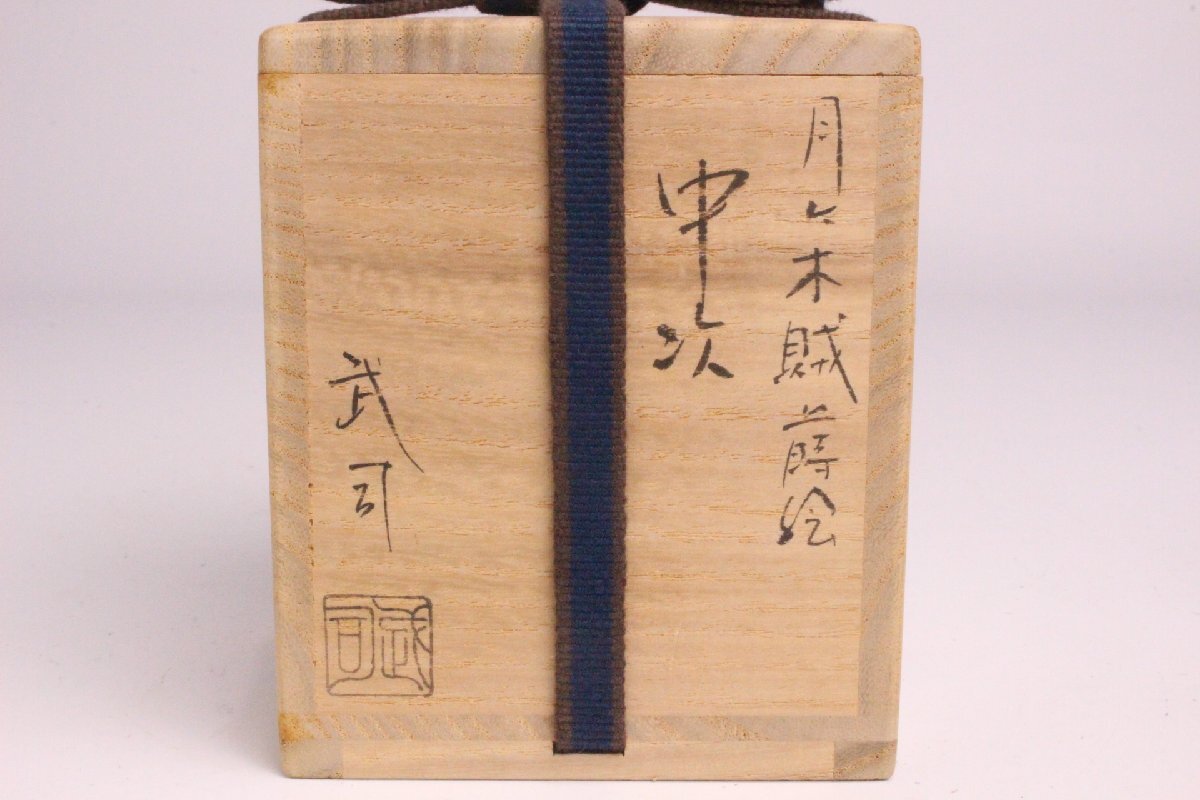 月ニ木賊蒔絵
中次
武司
武司